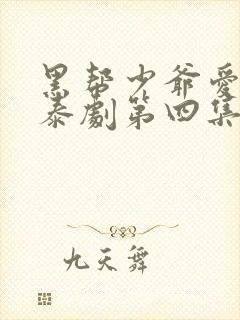 黑帮少爷爱
泰劇第四集
九天舞